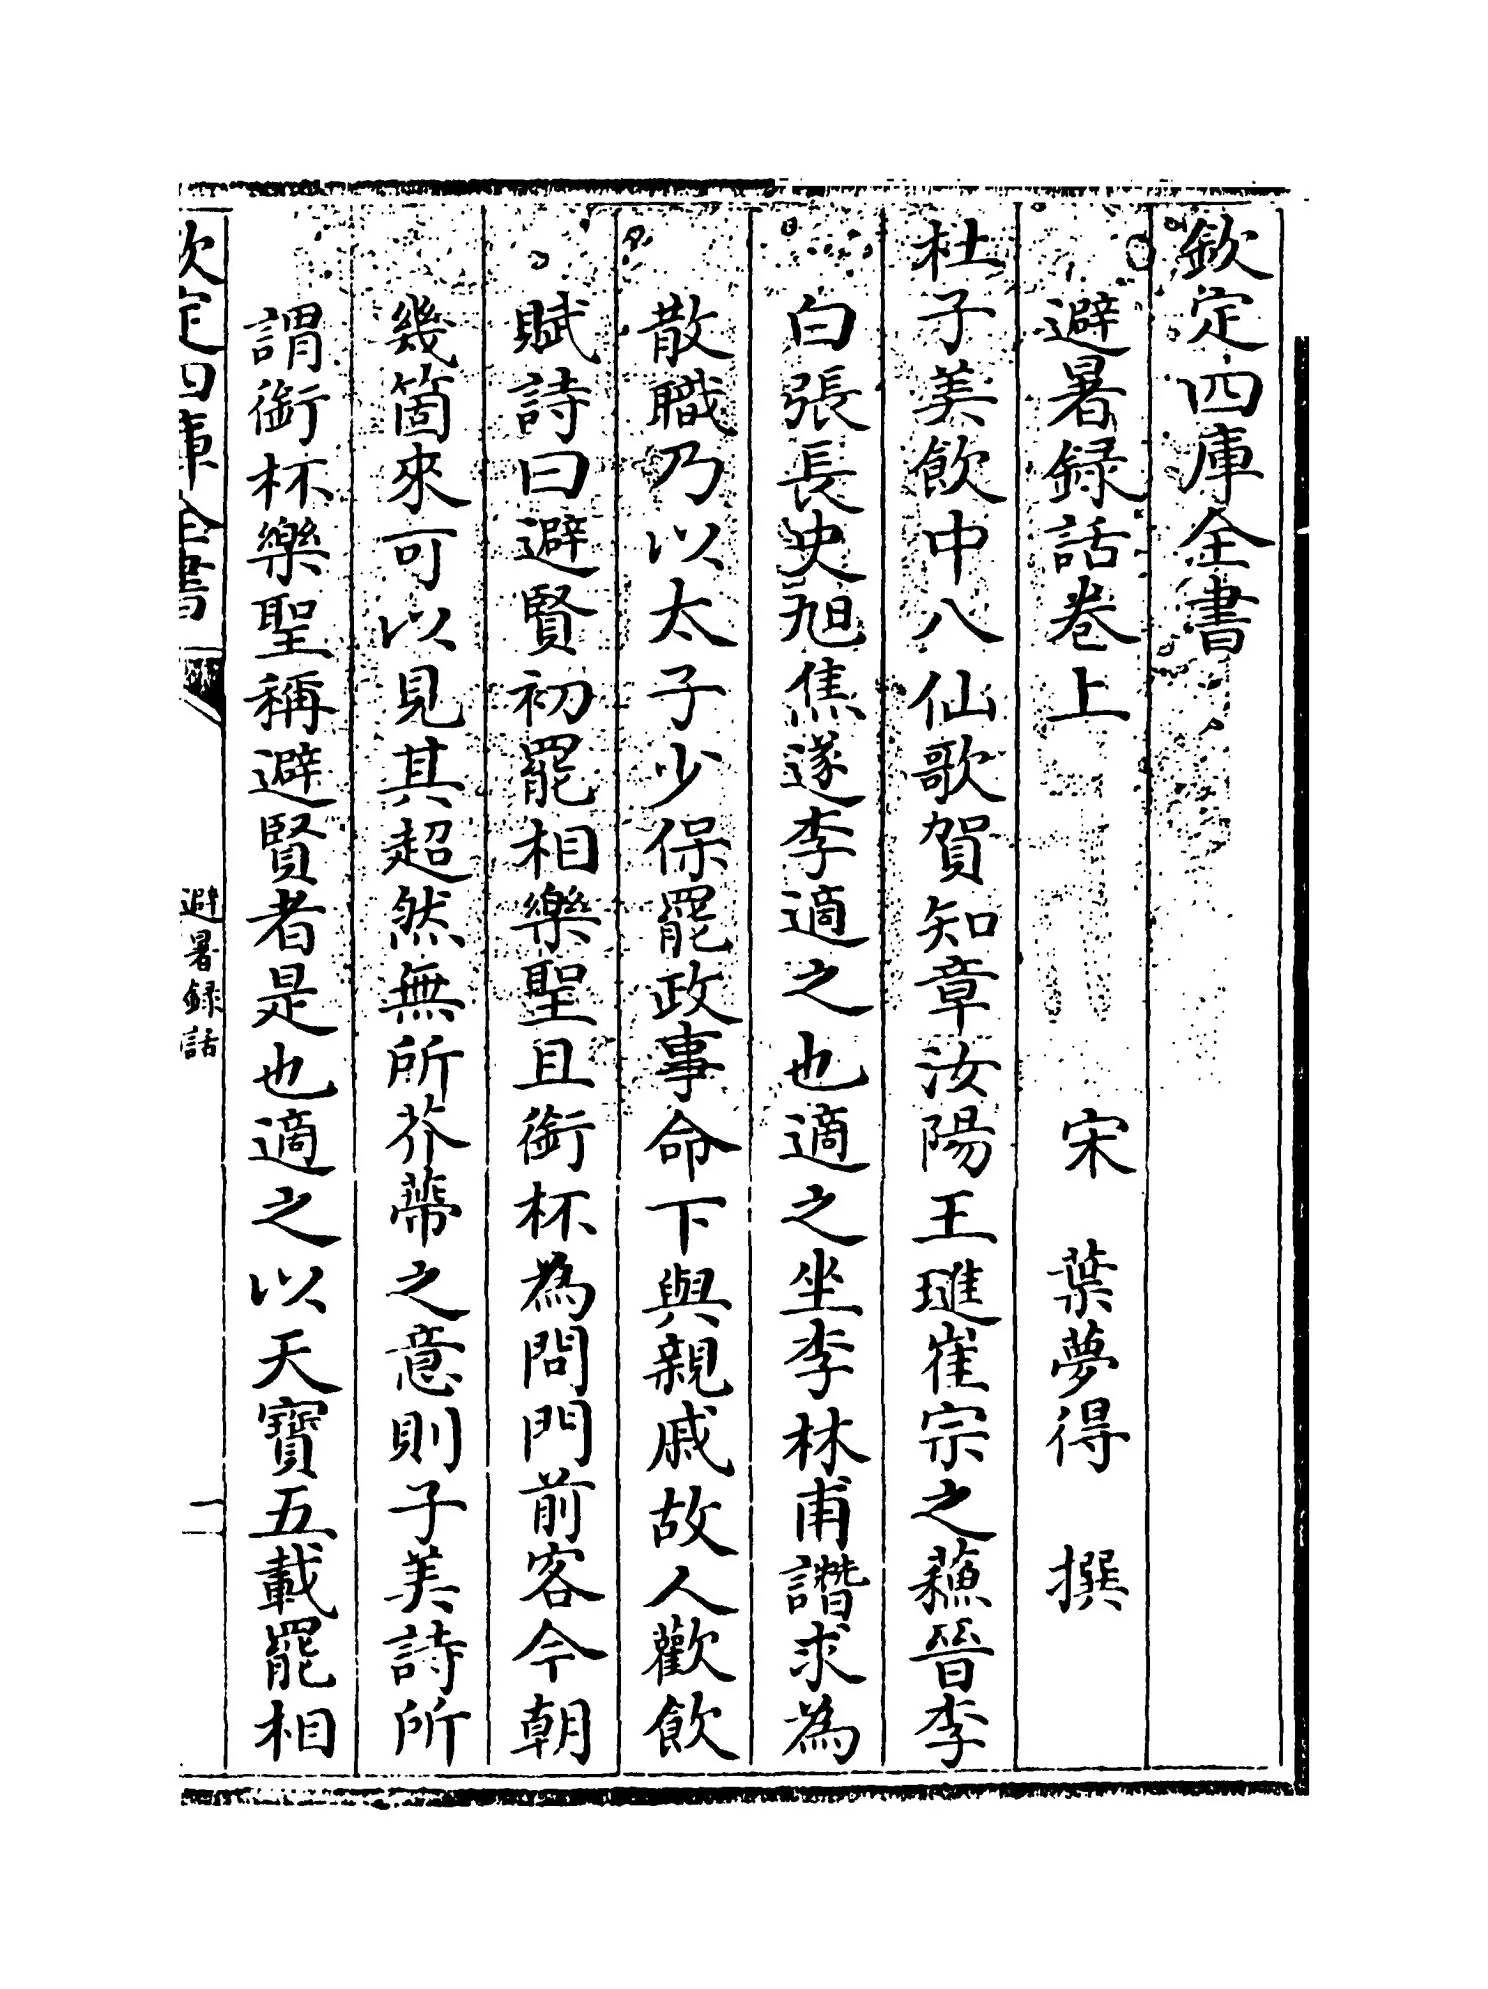 欽定四庫全書
避暑録話卷上
宋 葉夢得 撰
杜子美飲中八仙歌賀知章汝陽王璡崔宗之蘓晉李
白張長史旭焦遂李適之也適之坐李林甫譖求為
散職乃以太子少保罷政事命下與親戚故人歡飲
賦詩曰避賢初罷相樂聖且銜杯為問門前客今朝
幾箇來可以見其超然無所芥蔕之意則子美詩所
謂銜杯樂聖稱避賢者是也適之以天寶五載罷相
欽定四庫全書
避暑録話
一